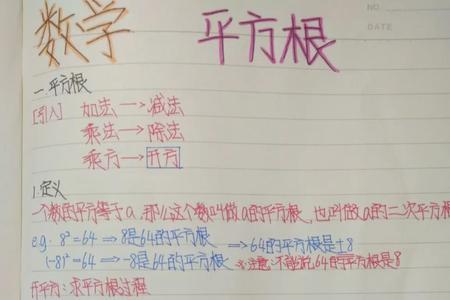 数学 平方根
NO
DATE
一.平方根
[引入] 加法→减法
乘法→除法
乘方→开方
1.定义
一个数的平方等于a,那么这个数叫做a的平方根,也叫做a的二次平方根
e.g. 8²=64 ⇒8是64的平方根 ⇒64的平方根是±8
(-8)²=64 ⇒-8是64的平方根 ※注意:不能说64的平方根是8
开平方:求平方根过程